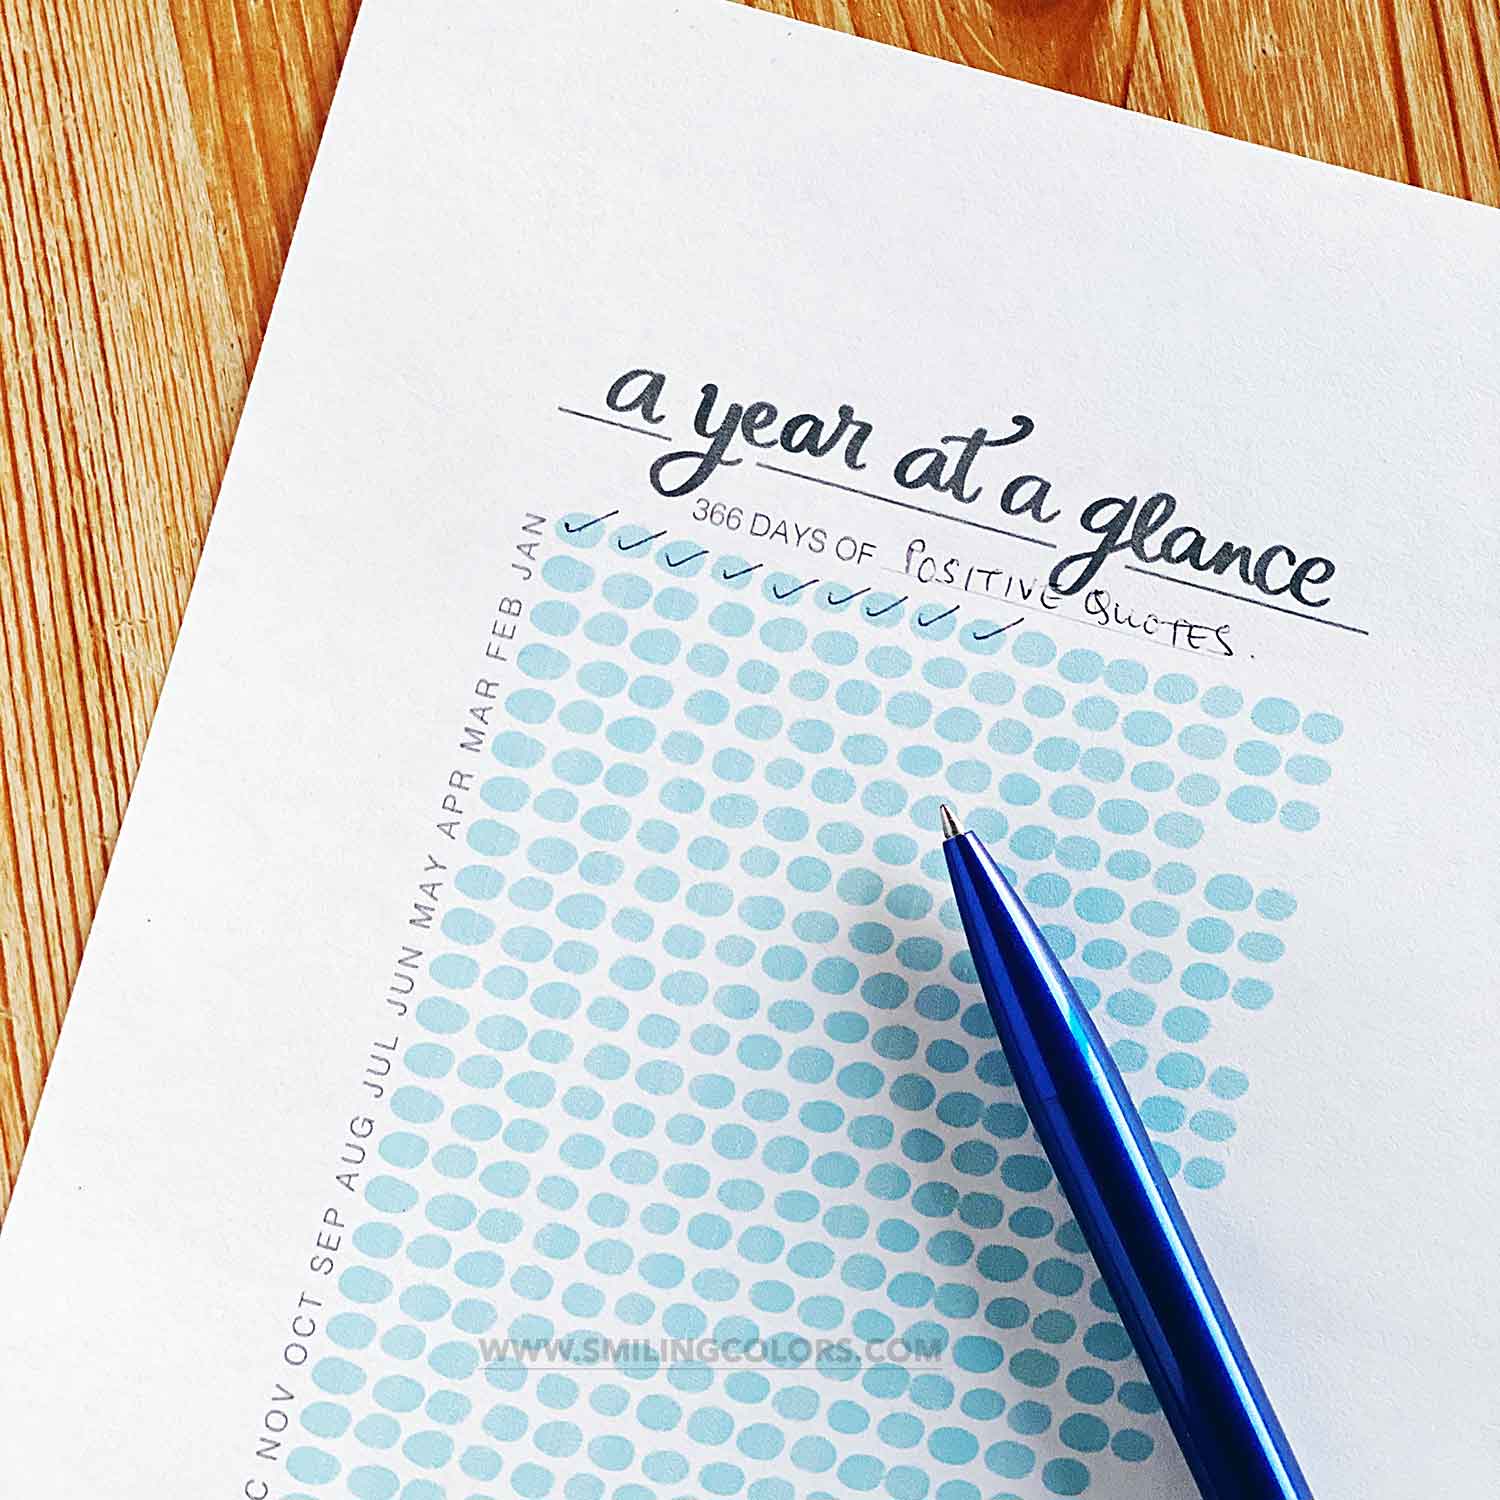 a year at a glance
366 DAYS OF POSITIVE QUOTES.
JAN
FEB
MAR
APR
MAY
JUN
JUL
AUG
SEP
OCT
NOV
C
WWW.SMILINGCOLORS.COM